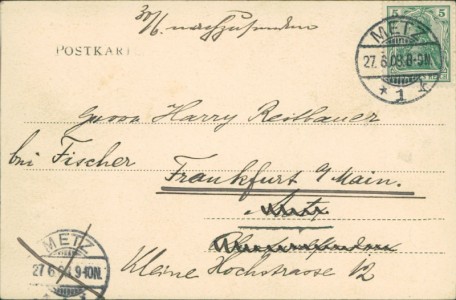 30/6. nachzusenden
POSTKARTE
5 5
METZ
27.6.03.8-9N.
* 1 *
Harry Reitbauer
bei Fischer
Frankfurt a/Main.
METZ
27.6.03.9-10N.
Kleine Hochstrasse 12